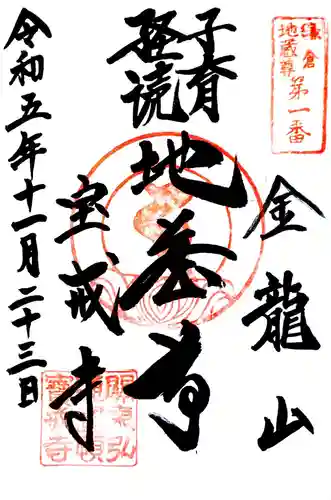 鎌倉
地蔵尊
第一番
金龍山
子育
経読
地蔵尊
宝戒寺
令和五年十一月二十三日
寳戒寺